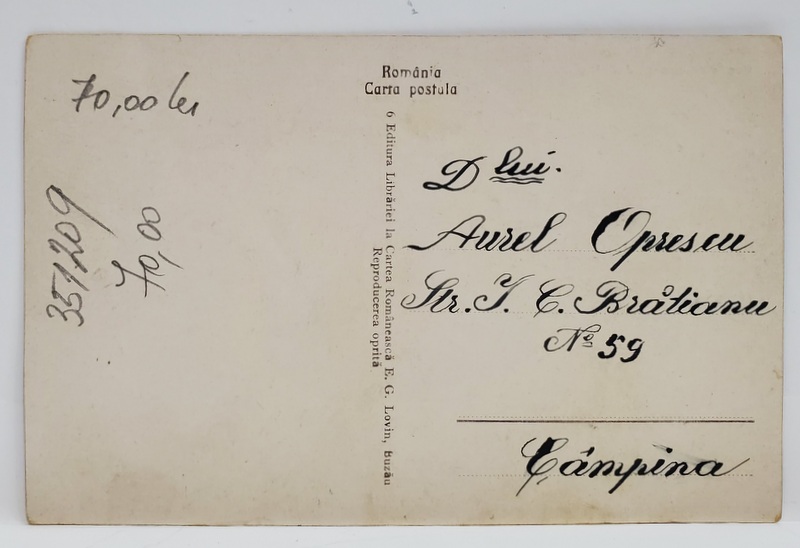 România
Carta postula
70,00 lei
351209
70,00
6 Editura Librăriei la Cartea Românească E. G. Lovin, Buzău
Reproducerea oprită
Dlui.
Aurel Oprescu
Str. I. C. Brătianu
No 59
Câmpina